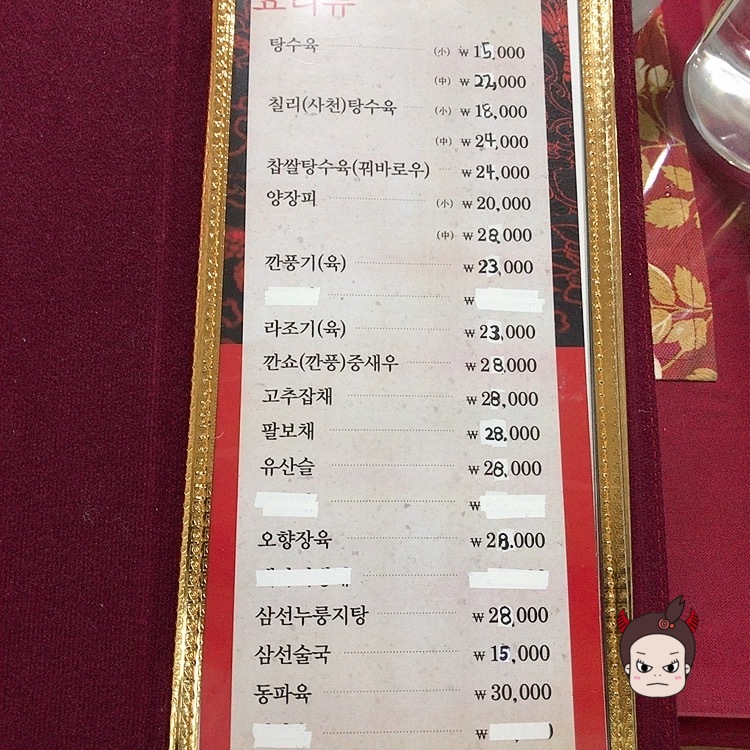 요리류
탕수육 (小) ₩ 15,000
(中) ₩ 22,000
칠리(사천)탕수육 (小) ₩ 18,000
(中) ₩ 24,000
찹쌀탕수육(꿔바로우) ₩ 24,000
양장피 (小) ₩ 20,000
(中) ₩ 28,000
깐풍기(육) ₩ 23,000
₩
라조기(육) ₩ 23,000
깐쇼(깐풍)중새우 ₩ 28,000
고추잡채 ₩ 28,000
팔보채 ₩ 28,000
유산슬 ₩ 28,000
₩
오향장육 ₩ 28,000
삼선누룽지탕 ₩ 28,000
삼선술국 ₩ 15,000
동파육 ₩ 30,000
₩